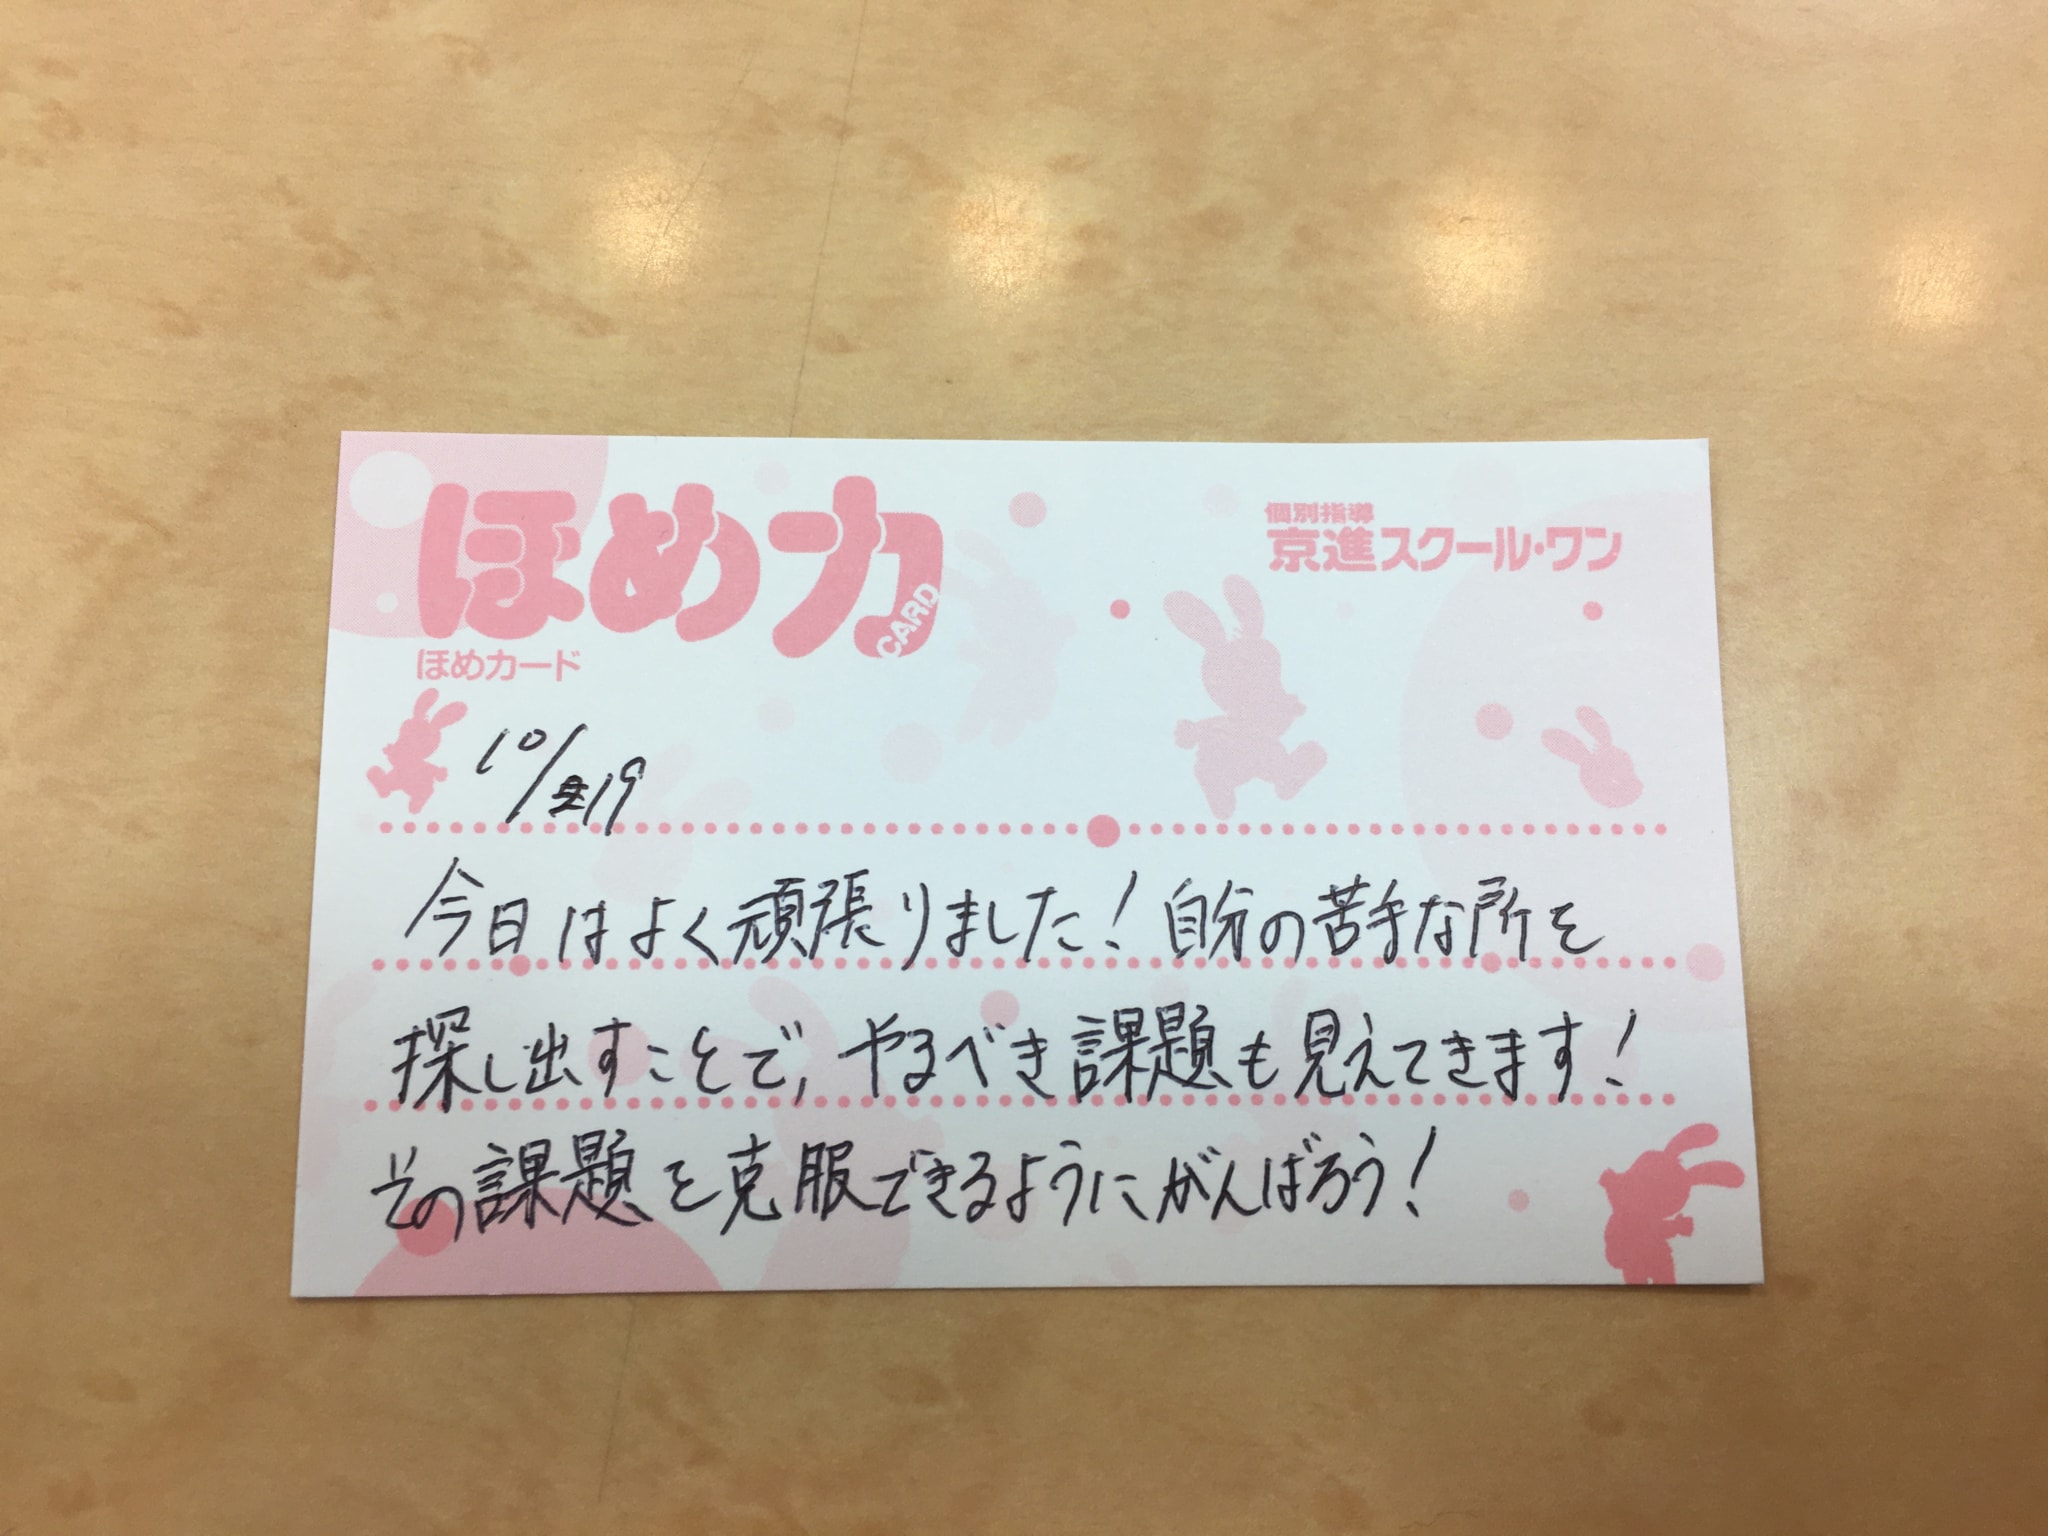 ほめ力
CARD
個別指導
京進スクール・ワン
ほめカード
10/19
今日はよく頑張りました!自分の苦手な所を
探し出すことで,やるべき課題も見えてきます!
その課題を克服できるようにがんばろう!